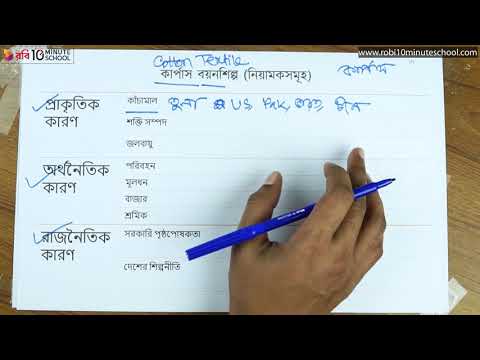 রবি 10 MINUTE SCHOOL
www.robi10minuteschool.com
Cotton Textile
কার্পাস বয়নশিল্প (নিয়ামকসমূহ)
কার্পাস
প্রাকৃতিক কারণ
কাঁচামাল তুলা US, Pak, ভারত, চীন
শক্তি সম্পদ
জলবায়ু
অর্থনৈতিক কারণ
পরিবহন
মূলধন
বাজার
শ্রমিক
রাজনৈতিক কারণ
সরকারি পৃষ্ঠপোষকতা
দেশের শিল্পনীতি